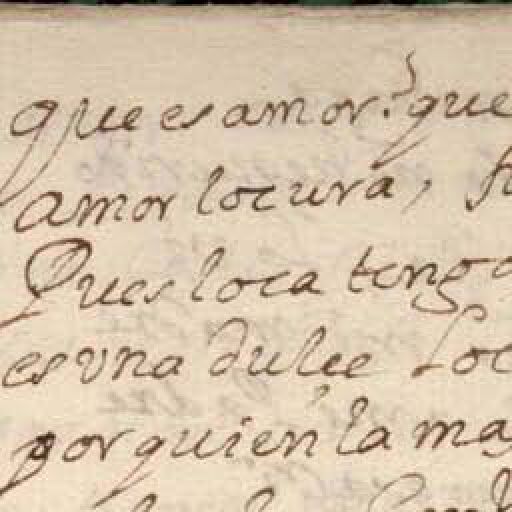 que es amor? que
amor locura,
Pues loca tengo
es vna dulce loc
por quien la ma